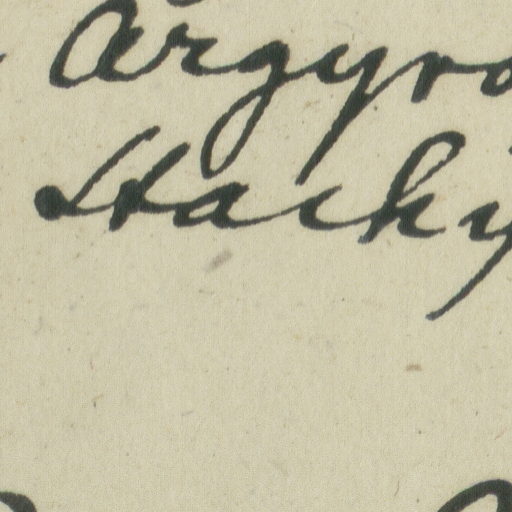 Argyro
Stachy